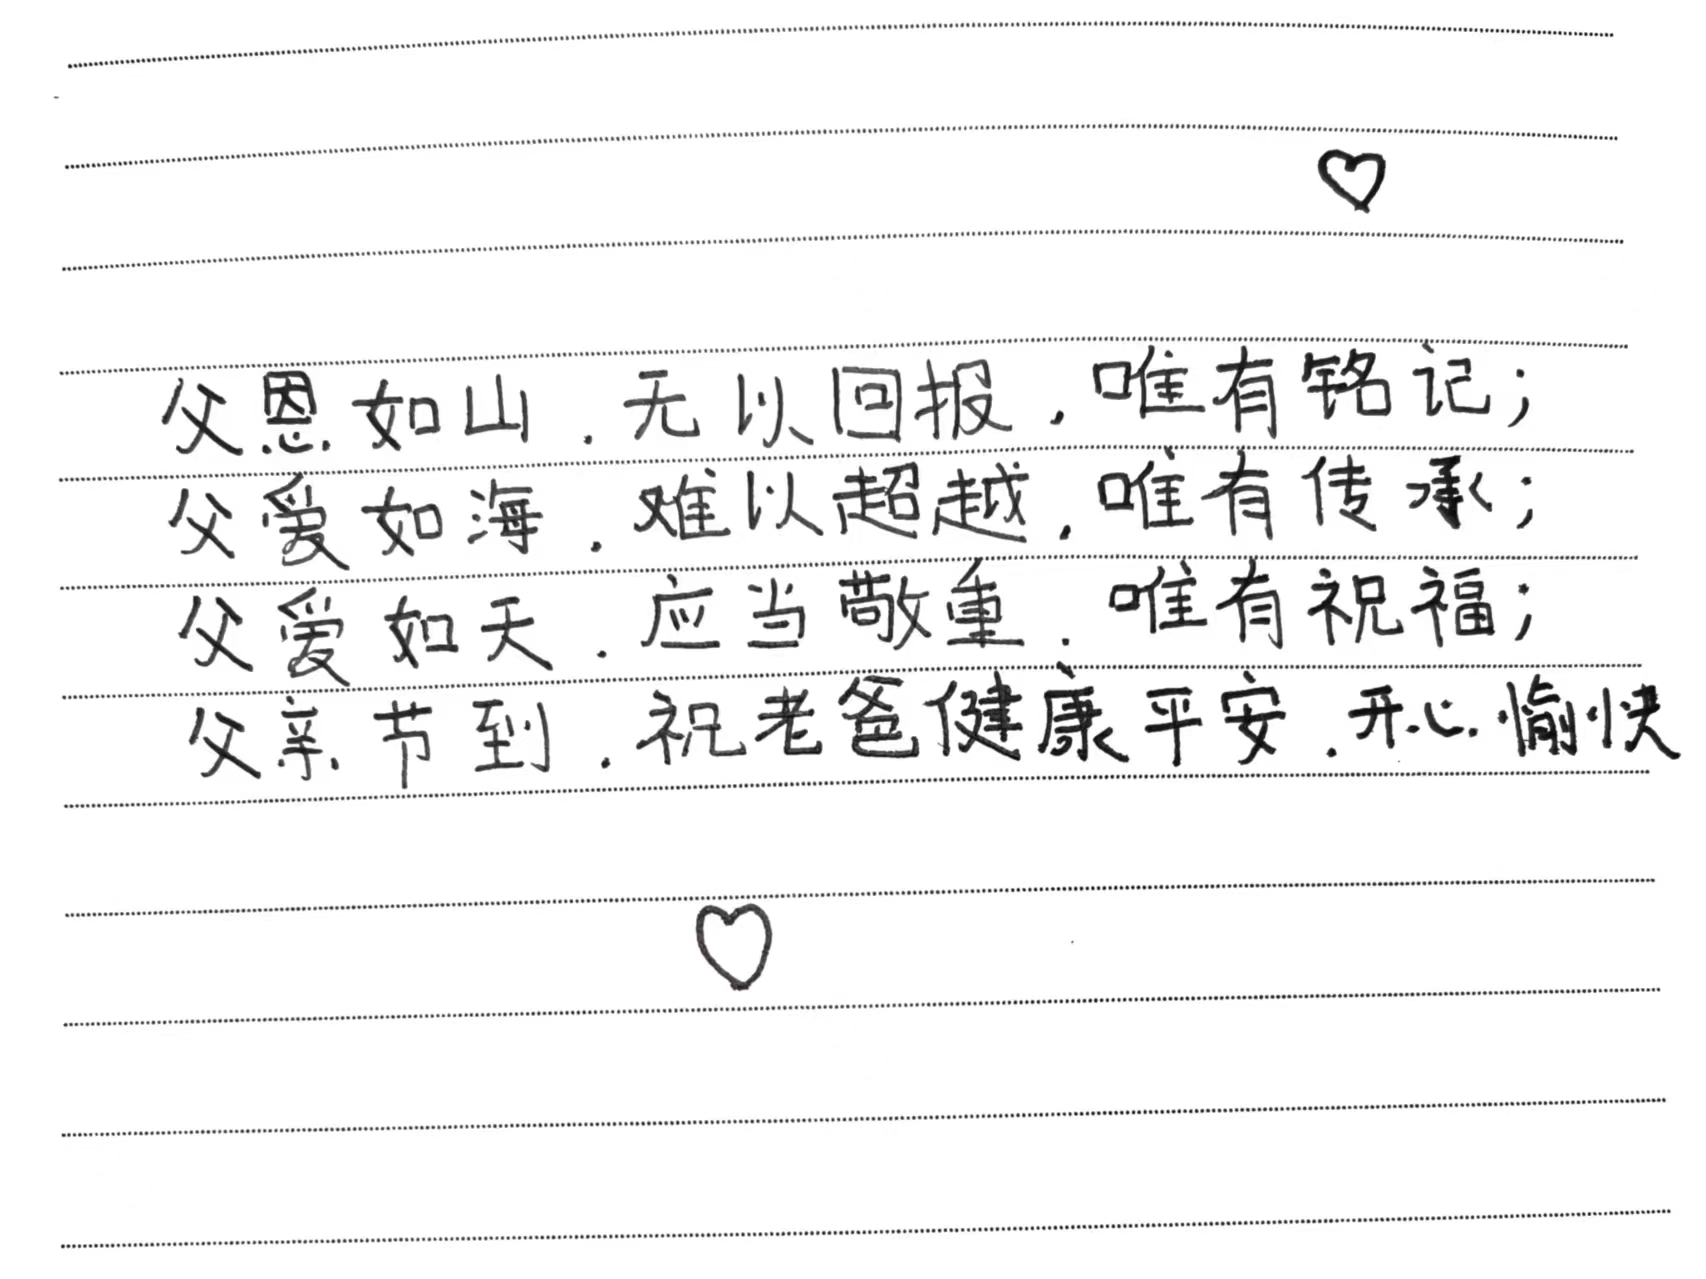 父恩如山.无以回报.唯有铭记;
父爱如海.难以超越.唯有传承;
父爱如天.应当敬重.唯有祝福;
父亲节到.祝老爸健康平安.开心愉快